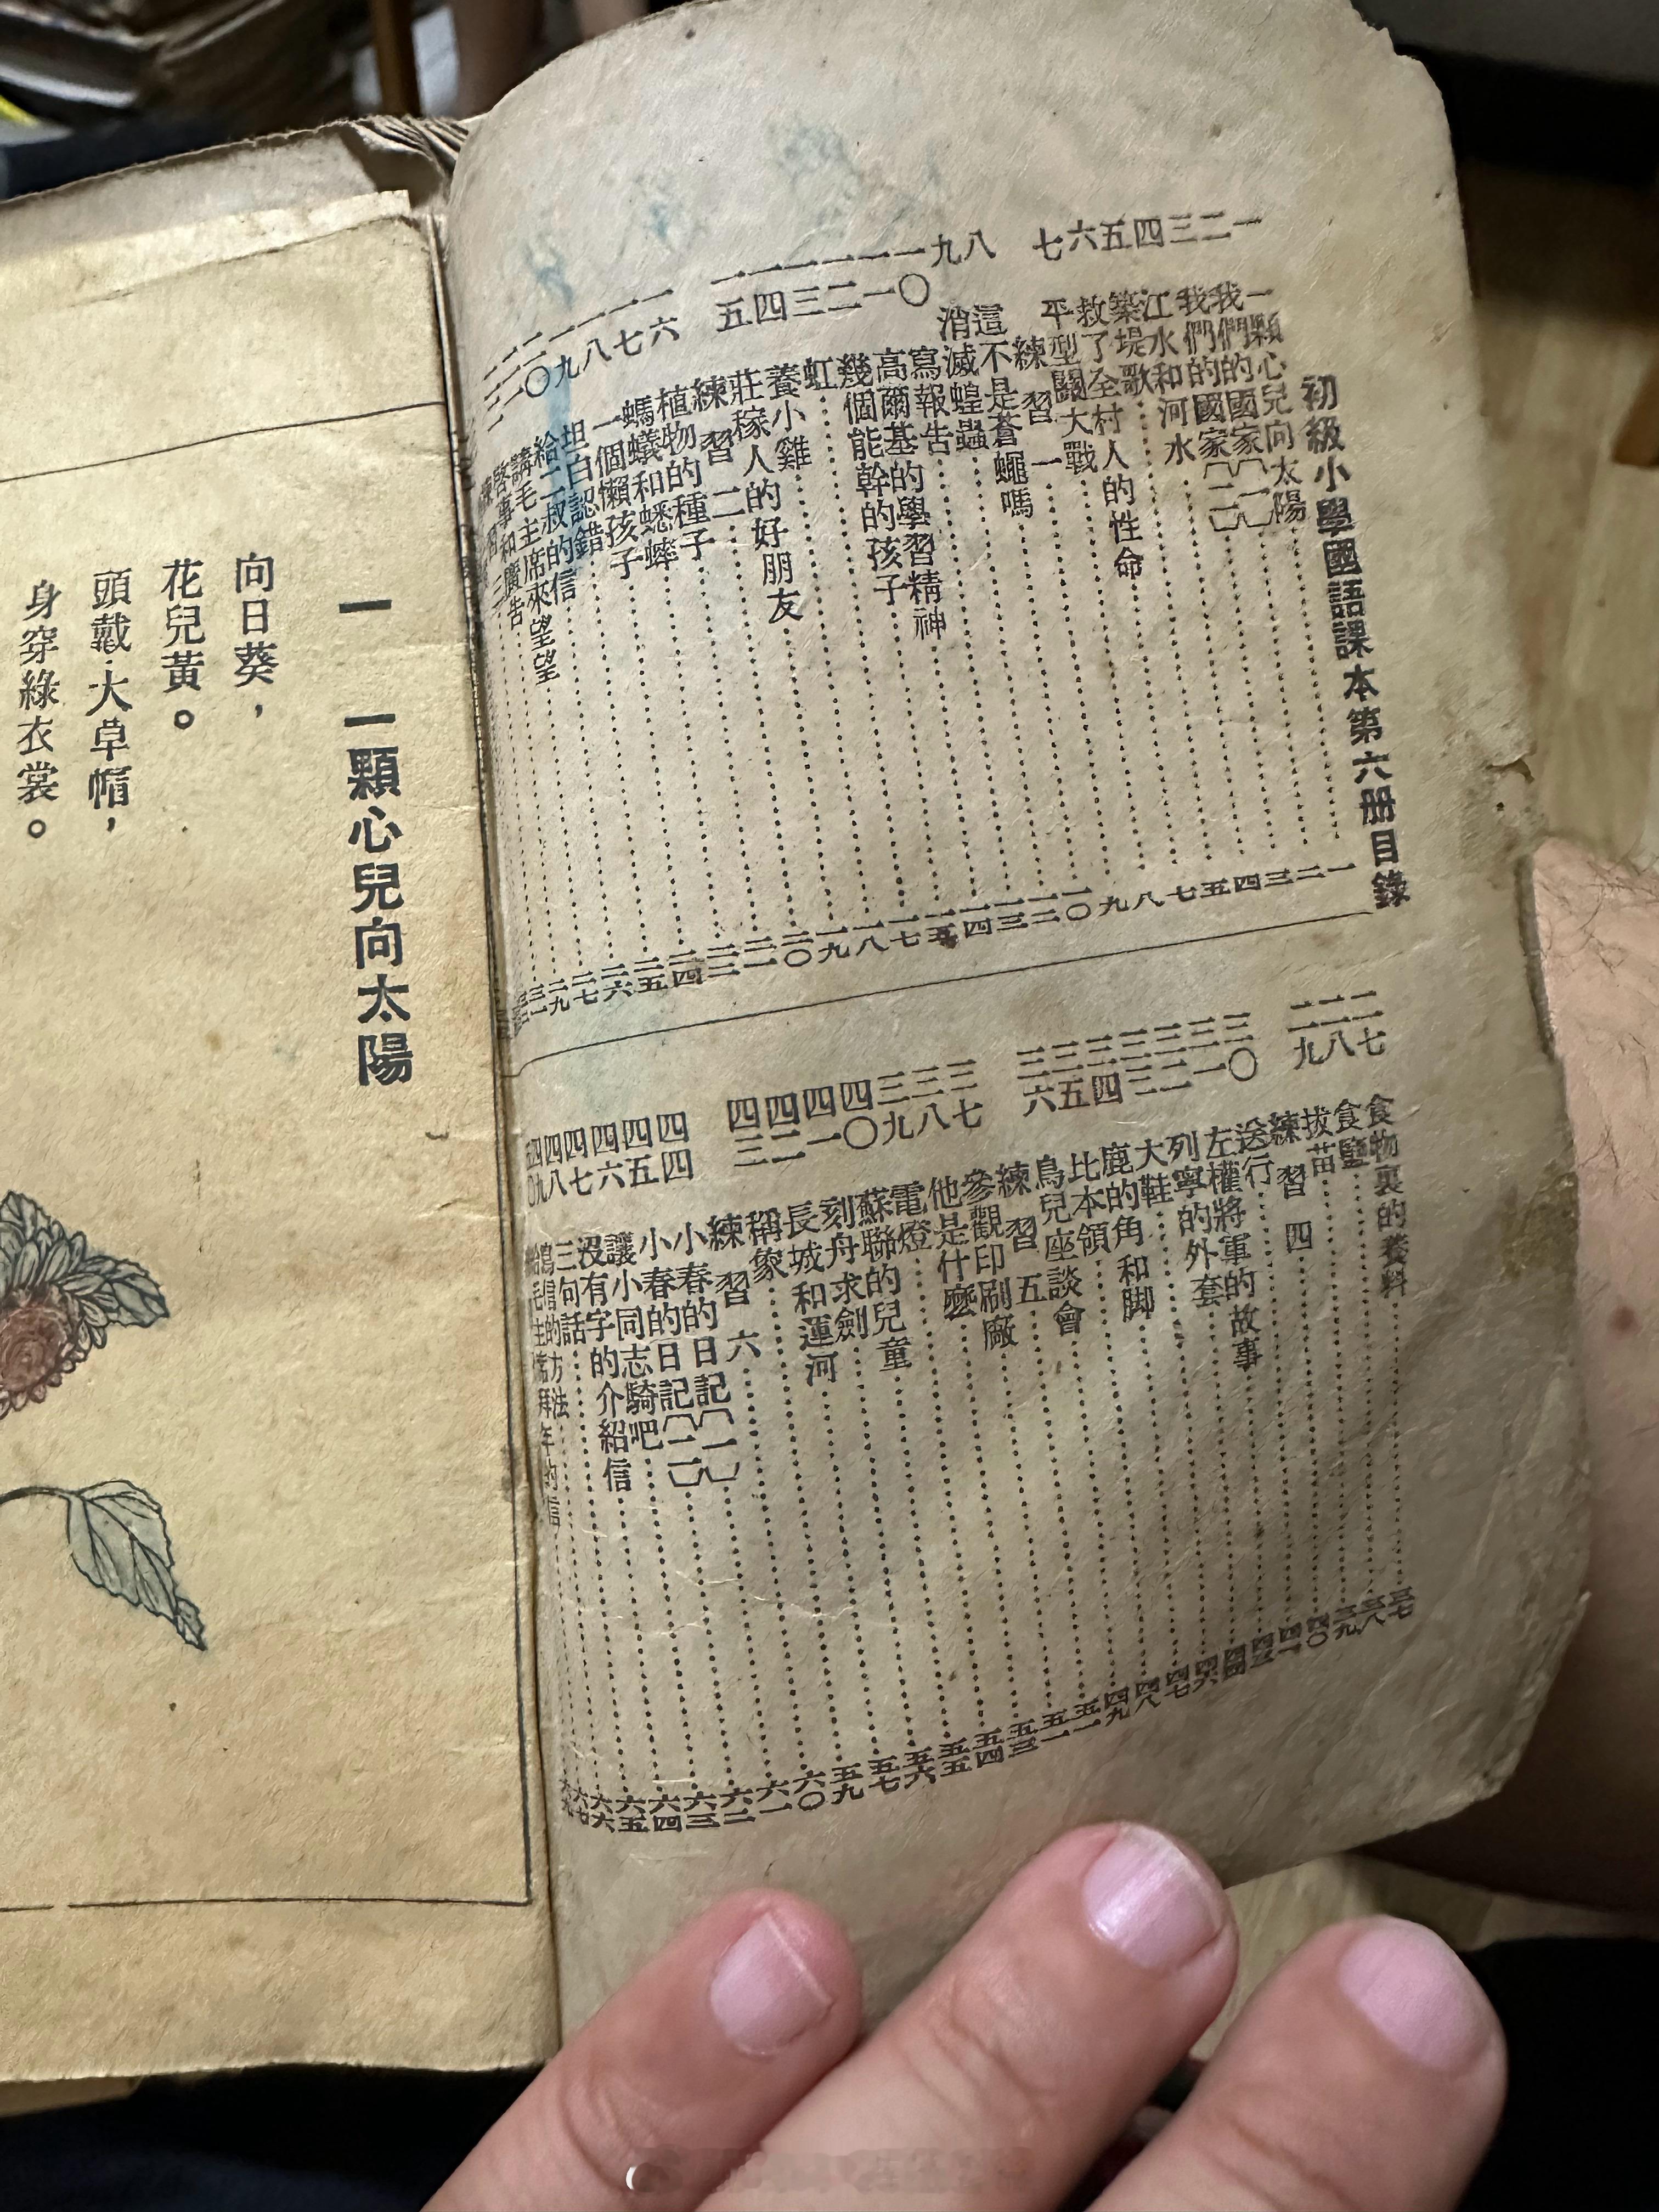 初級小學國語課本第六册目錄
一 一顆心兒向太陽 一
二 我們的國家(一) 二
三 我們的國家(二) 三
四 江水和河水 四
五 築堤歌 五
六 救了全村人的性命 七
七 平型關大戰 八
練習一 九
八 這不是蒼蠅嗎 一〇
九 消滅蝗蟲 一二
一〇 寫報告 一三
一一 高爾基的學習精神 一四
一二 幾個能幹的孩子 一五
一三 虹 一七
一四 養小雞 一八
一五 莊稼人的好朋友 一九
練習二 二〇
一六 植物的種子 二一
一七 螞蟻和蟋蟀 二二
一八 一個懶孩子 二四
一九 坦白認錯 二五
二〇 給二叔的信 二六
二一 講毛主席來望望 二七
啓事和廣告 二九
練習三
二七 食物裏的養料 三七
二八 食鹽 三八
二九 拔苗 三九
練習四 四〇
三〇 送行 四一
三一 左權將軍的故事 四三
三二 列寧的外套 四四
三三 大鞋 四六
三四 鹿的角和脚 四七
三五 比本領 四八
三六 鳥兒座談會 四九
練習五 五一
三七 參觀印刷廠 五二
三八 他是什麼 五三
三九 電燈 五四
四〇 蘇聯的兒童 五五
四一 刻舟求劍 五六
四二 長城和運河 五七
四三 稱象 五九
練習六 六〇
四四 小春的日記(一) 六一
四五 小春的日記(二) 六二
四六 讓小同志騎吧 六三
四七 没有字的介紹信 六四
四八 三句話 六五
四九 寫信的方法 六六
五〇 給毛主席拜年的信 六七
一 一顆心兒向太陽
向日葵，
花兒黃。
頭戴大草帽，
身穿綠衣裳。